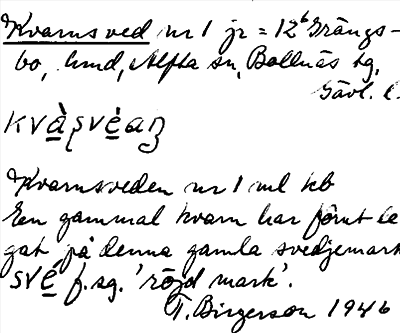 Kvarnsved nr 1 jr = 12b Grängs-
bo, hmd, Alfta sn, Bollnäs tg,
Gävl. l.
kvàʂvéaɳ
Kvarnsveden nr 1 ml kb
En gammal kvarn har förut le
gat på denna gamla svedjemark
své f. sg. 'röjd mark'.
T. Birgerson 1946